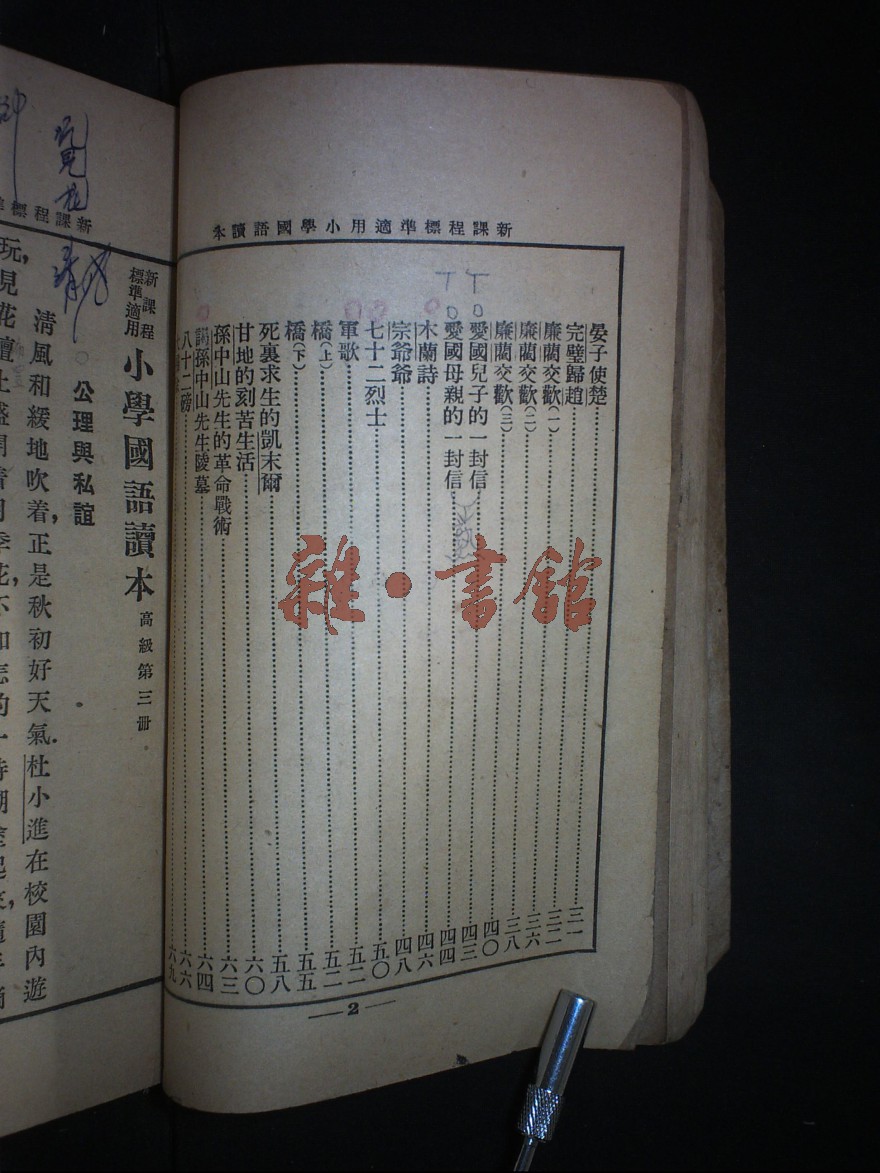 新課程標準適用小學國語讀本
晏子使楚……三一
完璧歸趙……三二
廉藺交歡(一)……三六
廉藺交歡(二)……三八
廉藺交歡(三)……四〇
愛國兒子的一封信……四三
愛國母親的一封信……四四
木蘭詩……四六
宗爺爺……四八
七十二烈士……五〇
軍歌……五二
橋(上)……五二
橋(下)……五五
死裏求生的凱末爾……五八
甘地的刻苦生活……六〇
孫中山先生的革命戰術……六三
謁孫中山先生陵墓……六四
八十二磅……六六
六九
—2—
雜·書館
新課程標
新課程標準適用 小學國語讀本 高級第三冊
公理與私誼
清風和緩地吹着,正是秋初好天氣.杜小進在校園內遊
玩,見花壇上盛開着月季花,不知怎的一時